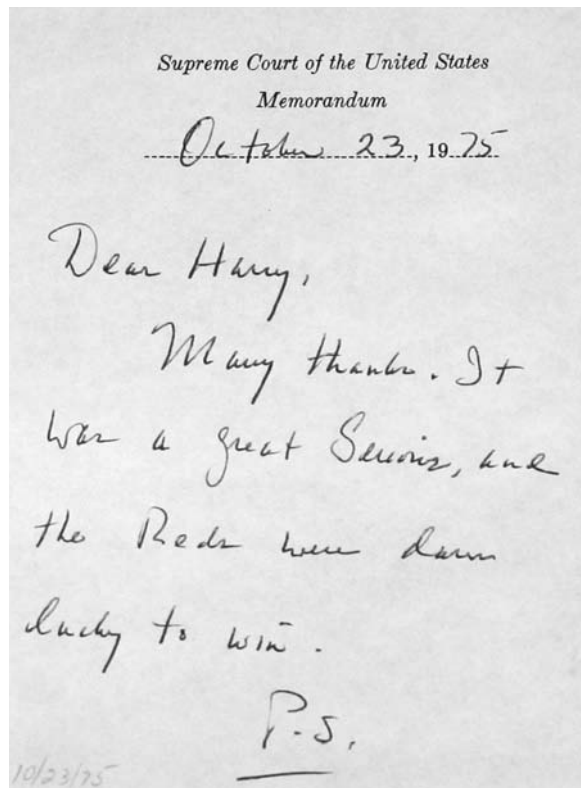 Supreme Court of the United States
Memorandum
October 23, 1975
Dear Harry,
Many thanks. It
was a great Series, and
the Reds were damn
lucky to win.
P.S.
10/23/75